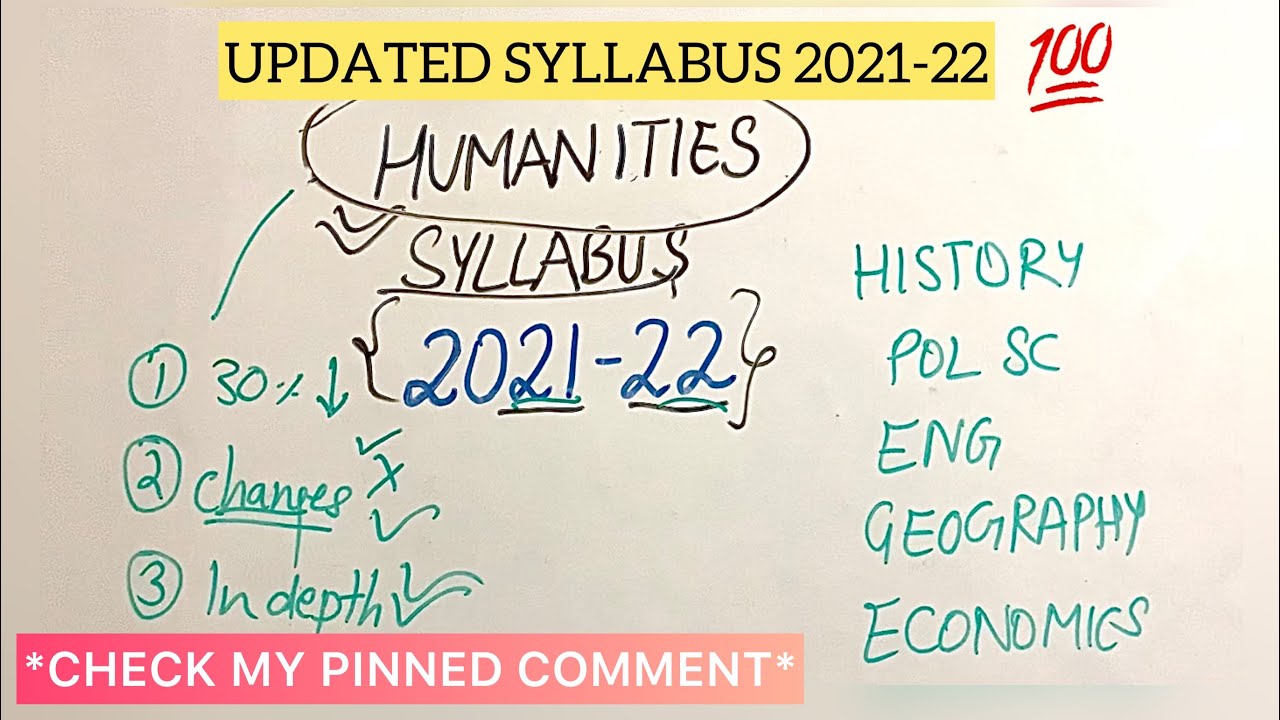 UPDATED SYLLABUS 2021-22 💯
HUMANITIES
SYLLABUS
{2021-22}
① 30% ↓
② Changes
③ In depth
HISTORY
POL SC
ENG
GEOGRAPHY
ECONOMICS
*CHECK MY PINNED COMMENT*